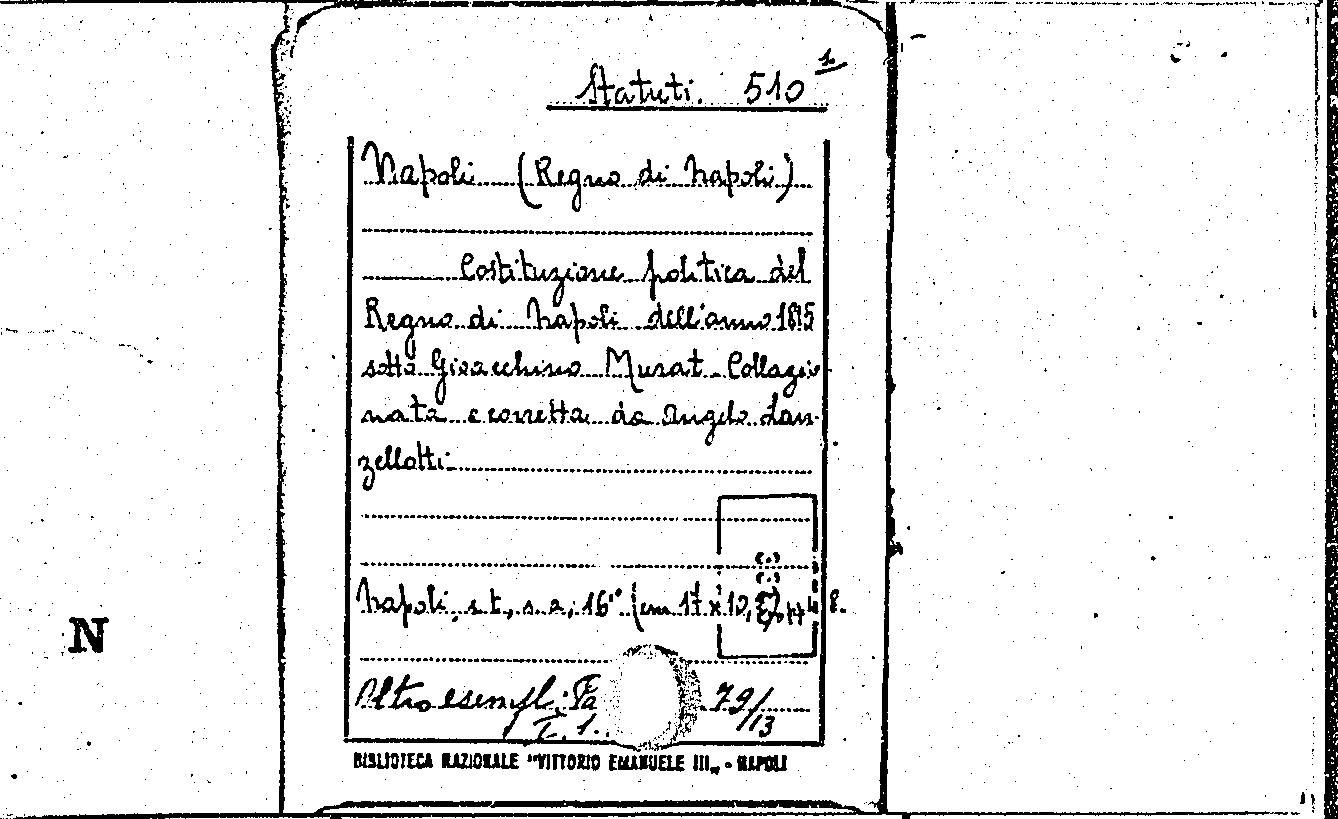 Statuti. 510 1.
Napoli (Regno di Napoli)
Costituzione politica del
Regno di Napoli dell'anno 1815
sotto Gioacchino Murat. Collazio-
nata e corretta da Angelo Lan-
zellotti.
Napoli, s. t., s. a., 16° (cm 17 x 10,
N
Altro esempl.:
I. 1. 79/13
BIBLIOTECA NAZIONALE "VITTORIO EMANUELE III„ - NAPOLI